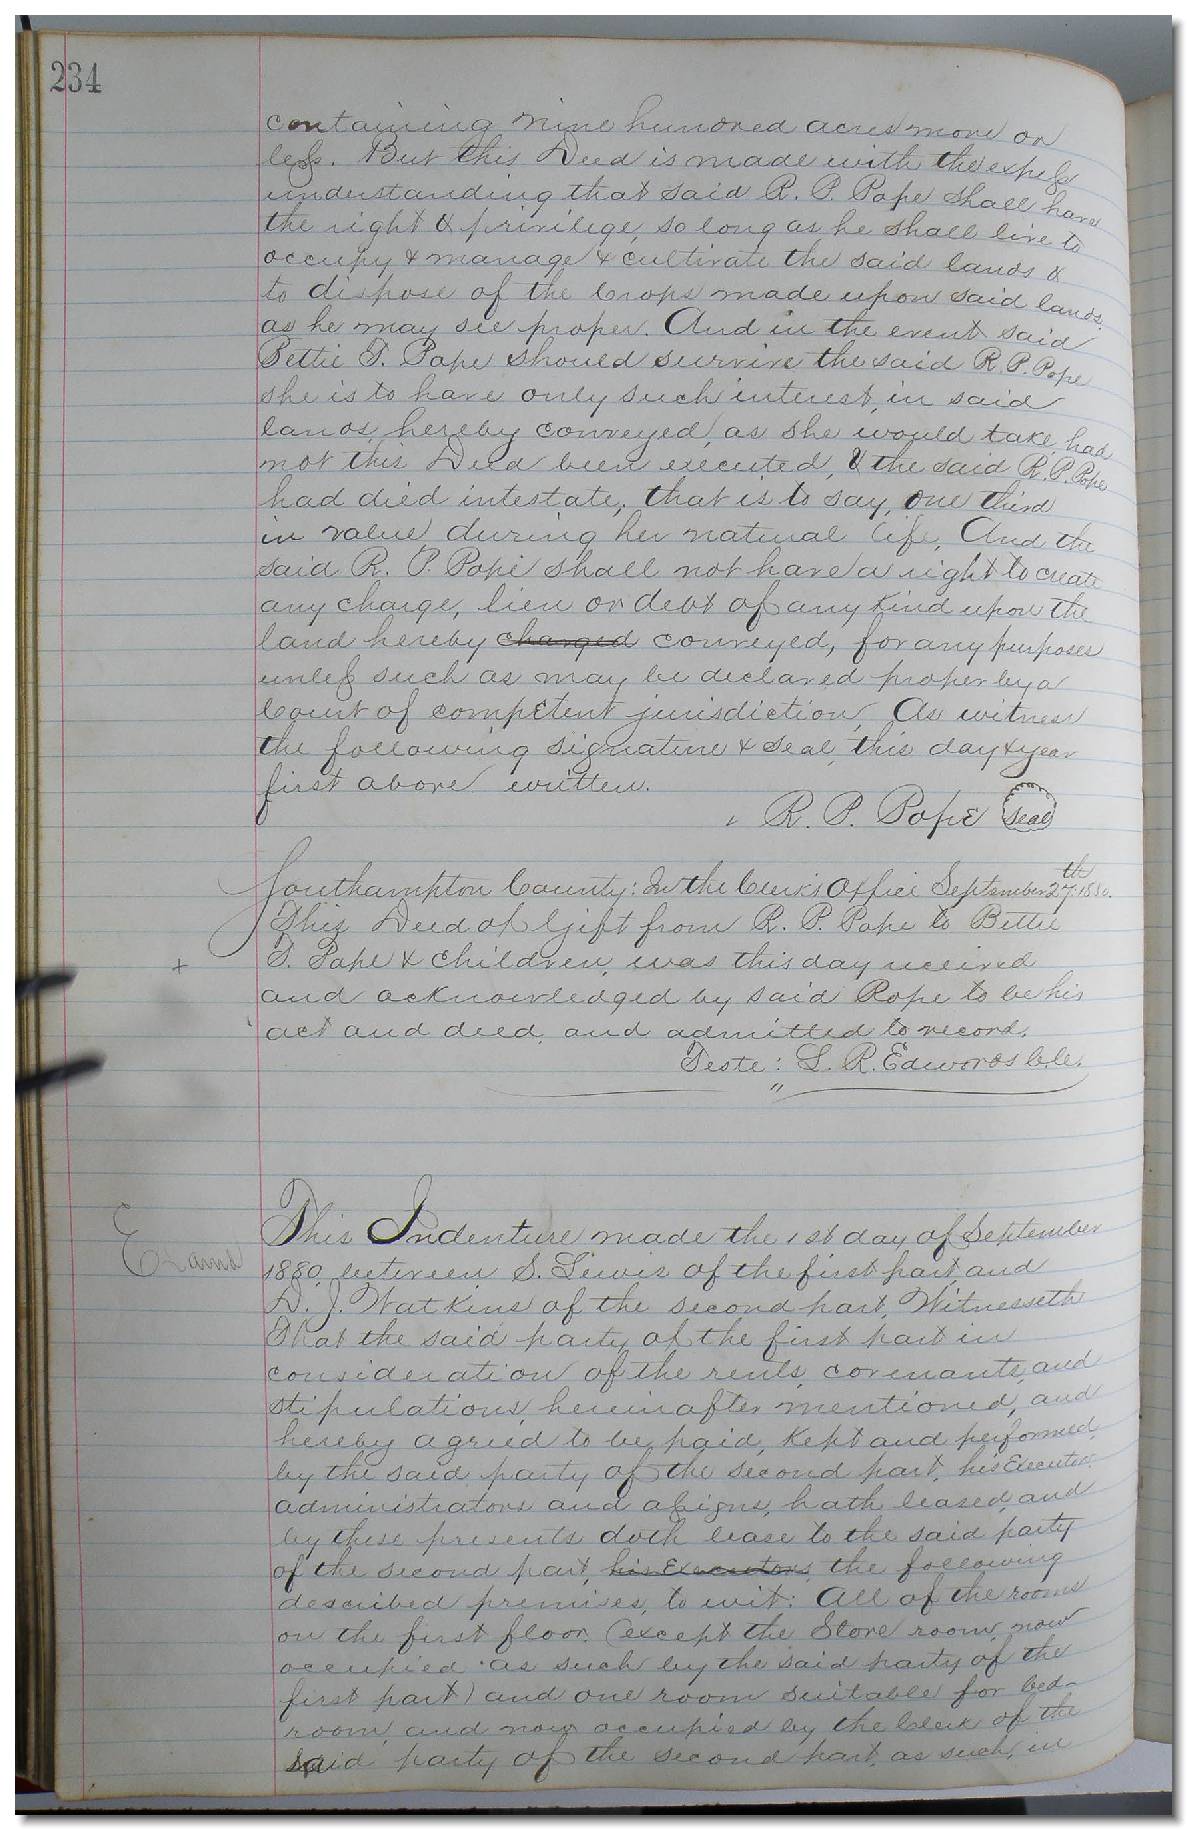 234
containing nine hundred acres more or
less. But this Deed is made with the express
understanding that said R. P. Pope shall have
the right & privilege, so long as he shall live to
occupy & manage & cultivate the said lands &
to dispose of the Crops made upon said lands,
as he may see proper. And in the event said
Bettie T. Pope should survive the said R. P. Pope
she is to have only such interest, in said
lands, hereby conveyed, as she would take, had
not this Deed been executed, & the said R. P. Pope
had died intestate, that is to say, one third
in value during her natural life, And the
said R. P. Pope shall not have a right to create
any charge, lien or debt of any kind upon the
land hereby charged conveyed, for any purposes
unless such as may be declared proper by a
Court of competent jurisdiction, As witness
the following signature & seal, this day & year
first above written.
R. P. Pope Seal
Southampton County: In the Clerk's Office September 27th 1880.
This Deed of Gift from R. P. Pope to Bettie
T. Pope & children, was this day received
and acknowledged by said Pope to be his
act and deed, and admitted to record.
Teste: L. R. Edwards Clk.
+
This Indenture made the 1st day of September
Examd
1880, between S. Lewis of the first part, and
D. J. Watkins of the second part, Witnesseth
That the said party of the first part in
consideration of the rents, covenants, and
stipulations, hereinafter mentioned, and
hereby agreed to be paid, kept and performed,
by the said party of the second part, his Executors
administrators and assigns, hath leased, and
by these presents doth lease to the said party
of the second part, his Executors, the following
described premises, to wit: All of the rooms
on the first floor (except the Store room, now
occupied as such by the said party of the
first part) and one room suitable for bed-
room, and now occupied by the clerk of the
said party of the second part, as such, in